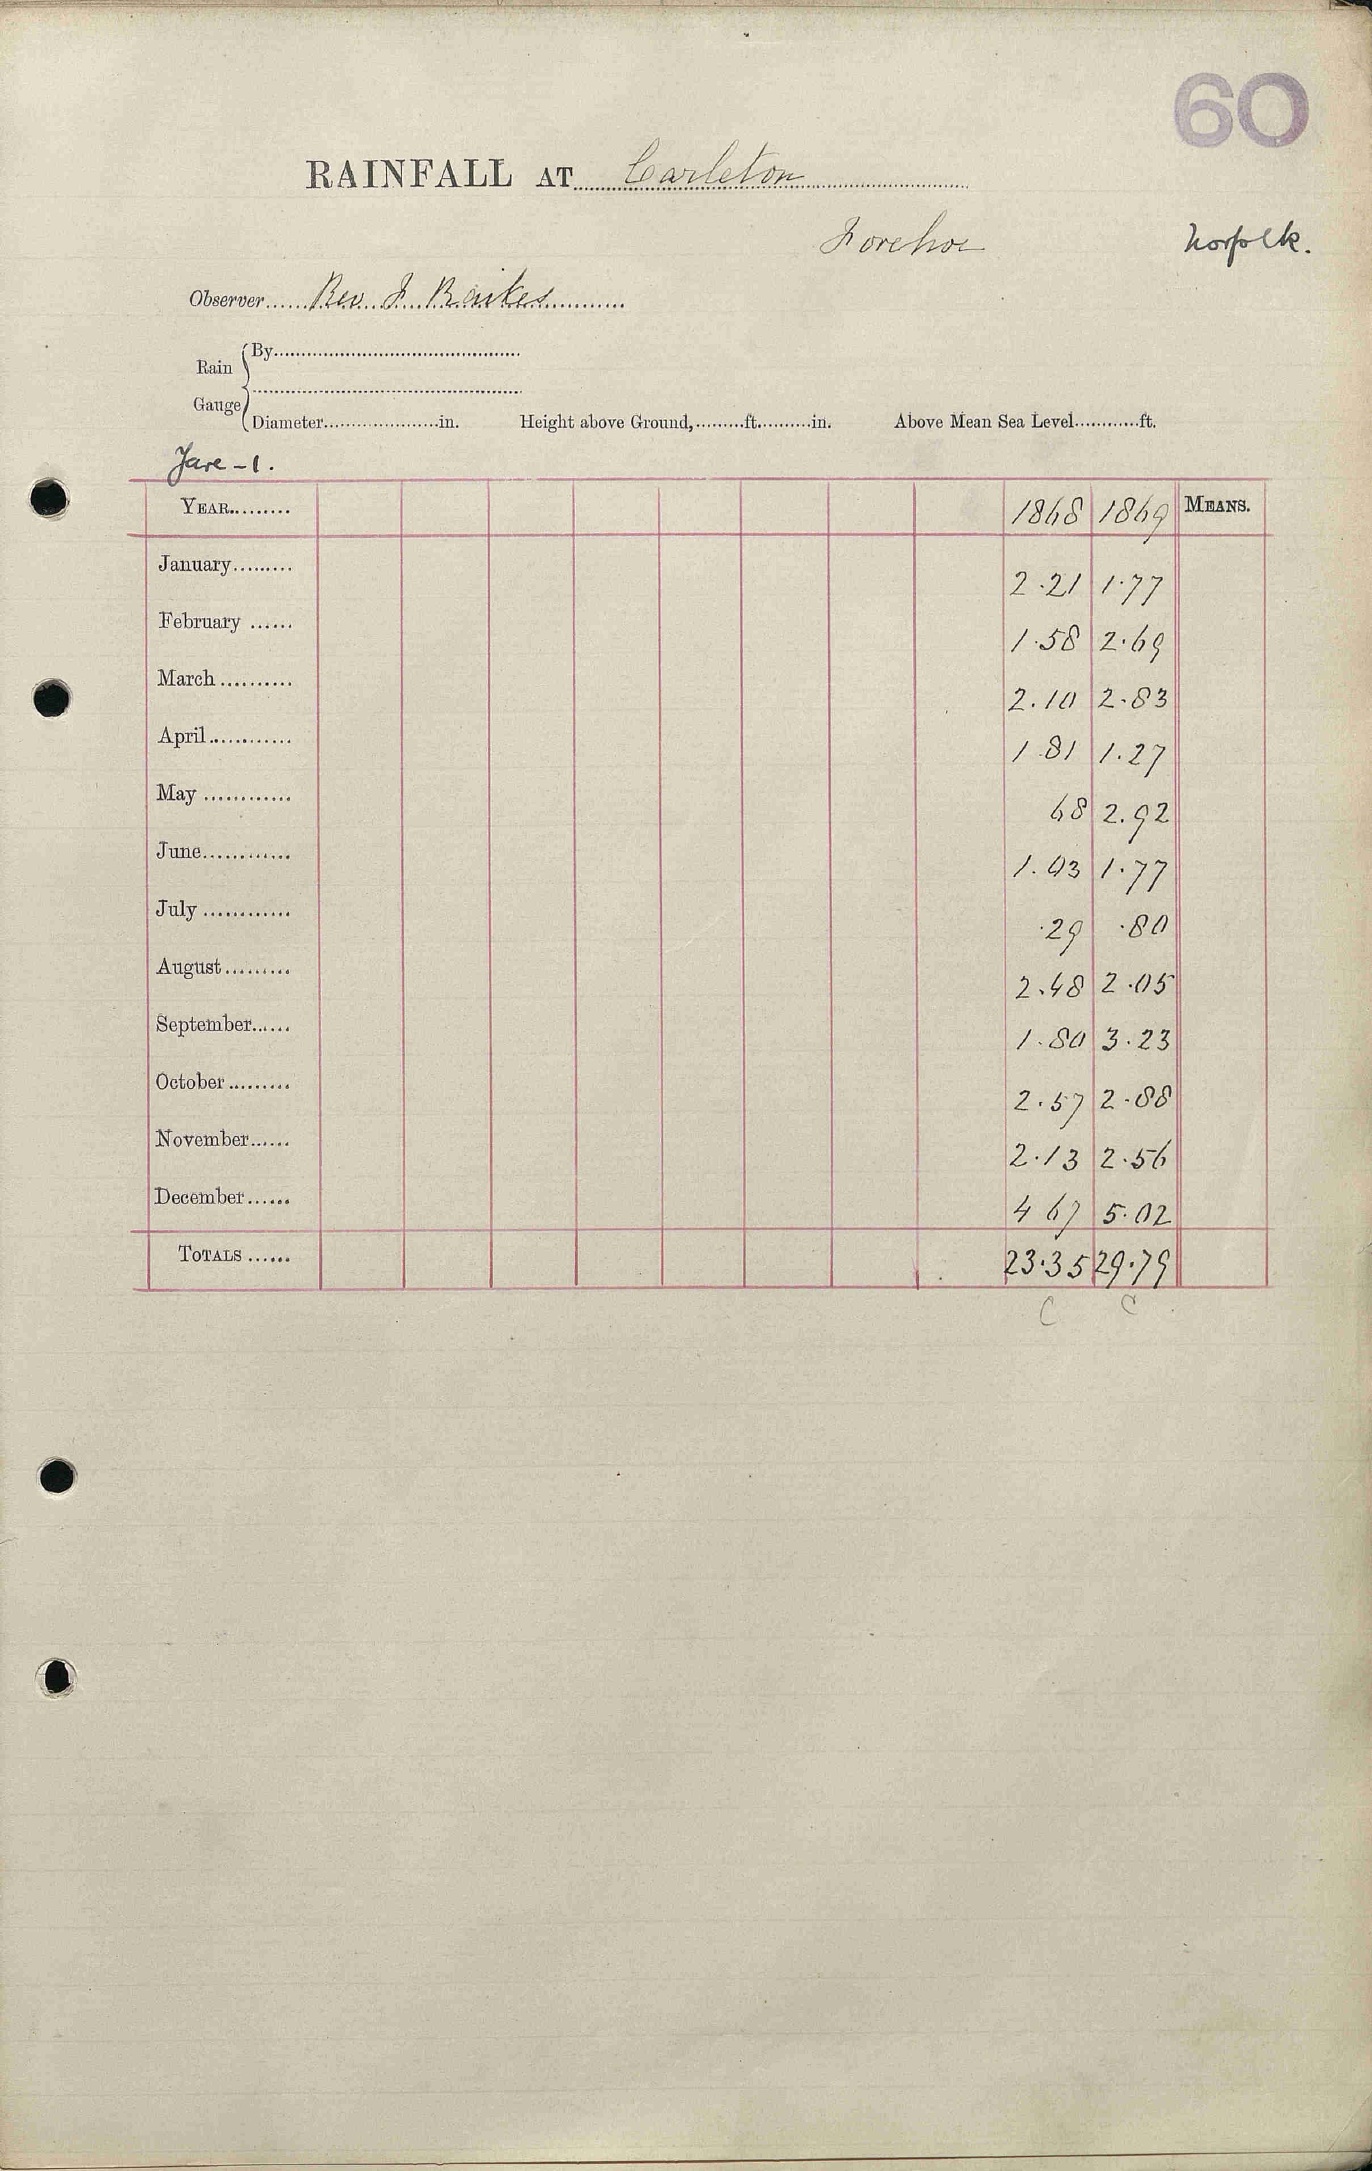 60
RAINFALL AT Carleton
Forehoe Norfolk.
Observer Rev. F Raikes
Rain Gauge
By
Diameter in. Height above Ground, ft. in. Above Mean Sea Level ft.
Yare - 1.
YEAR 1868 1869 MEANS.
January 2.21 1.77
February 1.58 2.69
March 2.10 2.83
April 1 81 1.27
May 68 2.92
June 1.03 1.77
July .29 .80
August 2.48 2.05
September 1.80 3.23
October 2.57 2.88
November 2.13 2.56
December 4 67 5.02
TOTALS 23.35 29.79
C C